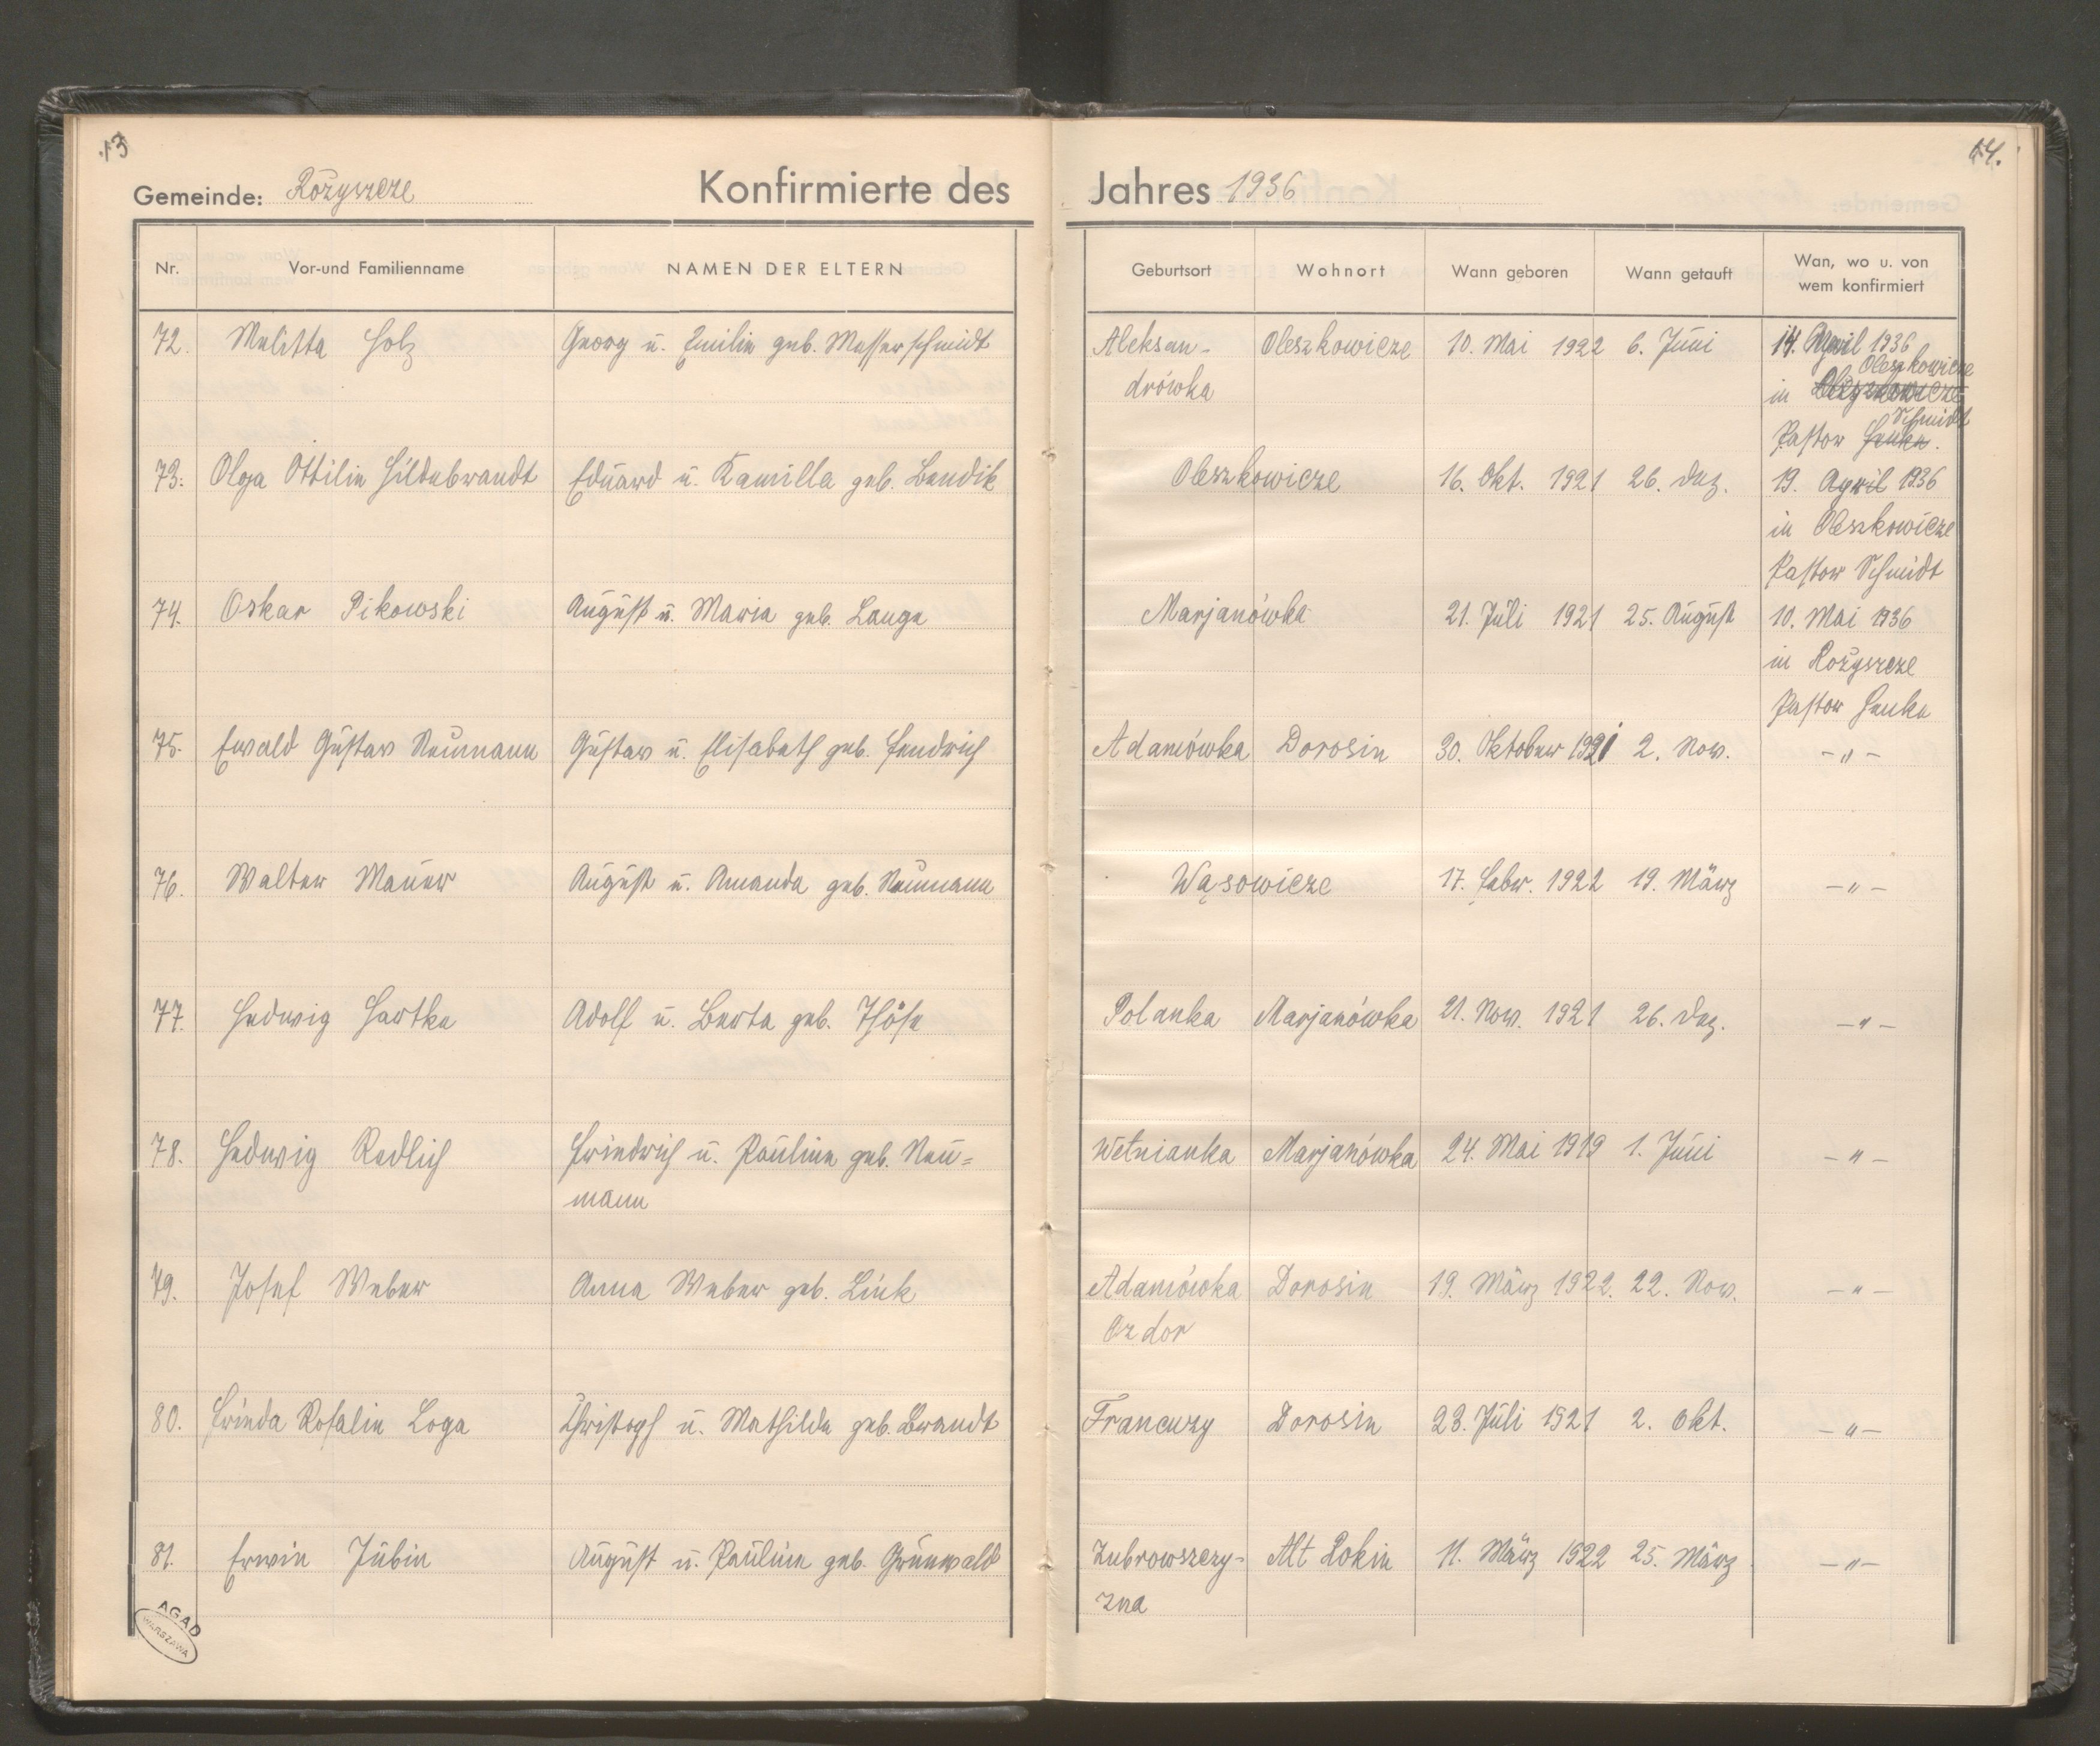 13
14.
Gemeinde: Rożyszcze Konfirmierte des Jahres 1936
Nr. Vor-und Familienname NAMEN DER ELTERN Geburtsort Wohnort Wann geboren Wann getauft Wan, wo u. von wem konfirmiert
72. Melitta Holz Georg u. Emilie geb. Messerschmidt Aleksan- Oleszkowicze 10. Mai 1922 6. Juni 14. April 1936
drówka in Oleszkowicze
Pastor Henke. Schmidt
73. Olga Ottilie Hildebrandt Eduard u. Kamilla geb. Bendik Oleszkowicze 16. Okt. 1921 26. Dez. 19. April 1936
in Oleszkowicze
Pastor Schmidt
74. Oskar Pikowski August u. Maria geb. Lange Marjanówka 21. Juli 1921 25. August 10. Mai 1936
in Rożyszcze
Pastor Henke
75. Ewald Gustav Neumann Gustav u. Elisabeth geb. Fendrich Adamówka Dorosin 30. Oktober 1921 2. Nov. -"-
76. Walter Mauer August u. Amanda geb. Neumann Wąsowicze 17. Febr. 1922 19. März -"-
77. Hedwig Hartke Adolf u. Berta geb. Thöse Polanka Marjanówka 21. Nov. 1921 26. Dez. -"-
78. Hedwig Redlich Friedrich u. Pauline geb. Neu= Wełnianka Marjanówka 24. Mai 1919 1. Juni -"-
mann
79. Josef Weber Anna Weber geb. Link Adamówka Dorosin 19. März 1922. 22. Nov. -"-
Ozdor
80. Frieda Rosalie Loga Christoph u. Mathilde geb. Brandt Francuzy Dorosin 23. Juli 1921 2. Okt. -"-
81. Erwin Jubin August u. Pauline geb. Grünwald Zubrowszczy- Alt Rokin 11. März 1922 25. März -"-
zna
AGAD
WARSZAWA